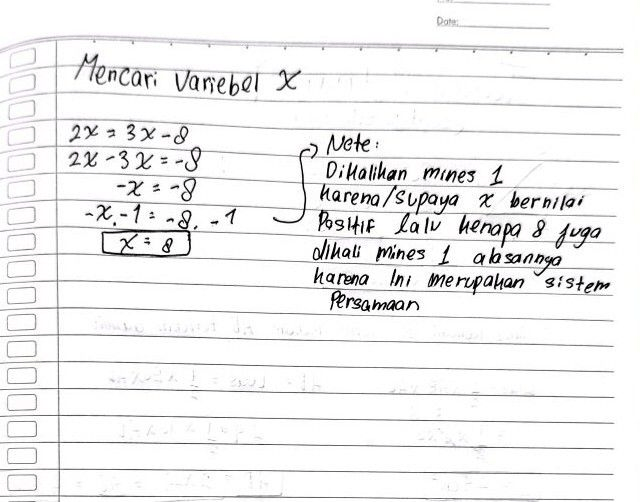 Date:
Mencari Variebel X
2x = 3x - 8
2x - 3x = -8
-x = -8
-x . -1 = -8 . -1
x = 8
Note:
Dikalikan mines 1
karena/supaya x bernilai
Positif lalu kenapa 8 juga
dikali mines 1 alasannya
karena ini merupakan sistem
Persamaan